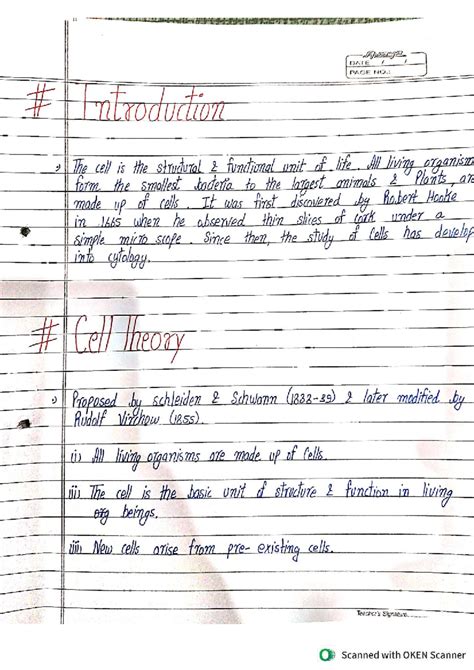 DATE / /
PAGE NO.:
# Introduction
The cell is the structural & functional unit of life. All living organism
form the smallest bacteria to the largest animals & Plants are
made up of cells. It was first discovered by Robert Hooke
in 1665 when he observed thin slices of Cork under a
simple micro scope. Since then, the study of Cells has develop
into cytology.
# Cell Theory
Proposed by schleiden & Schwann (1838-39) & later modified by
Rudolf Virchow (1855).
(i) All living organisms are made up of Cells.
(ii) The cell is the basic unit of structure & function in living
org beings.
(iii) New cells arise from pre-existing cells.
Teacher's Signature
Scanned with OKEN Scanner